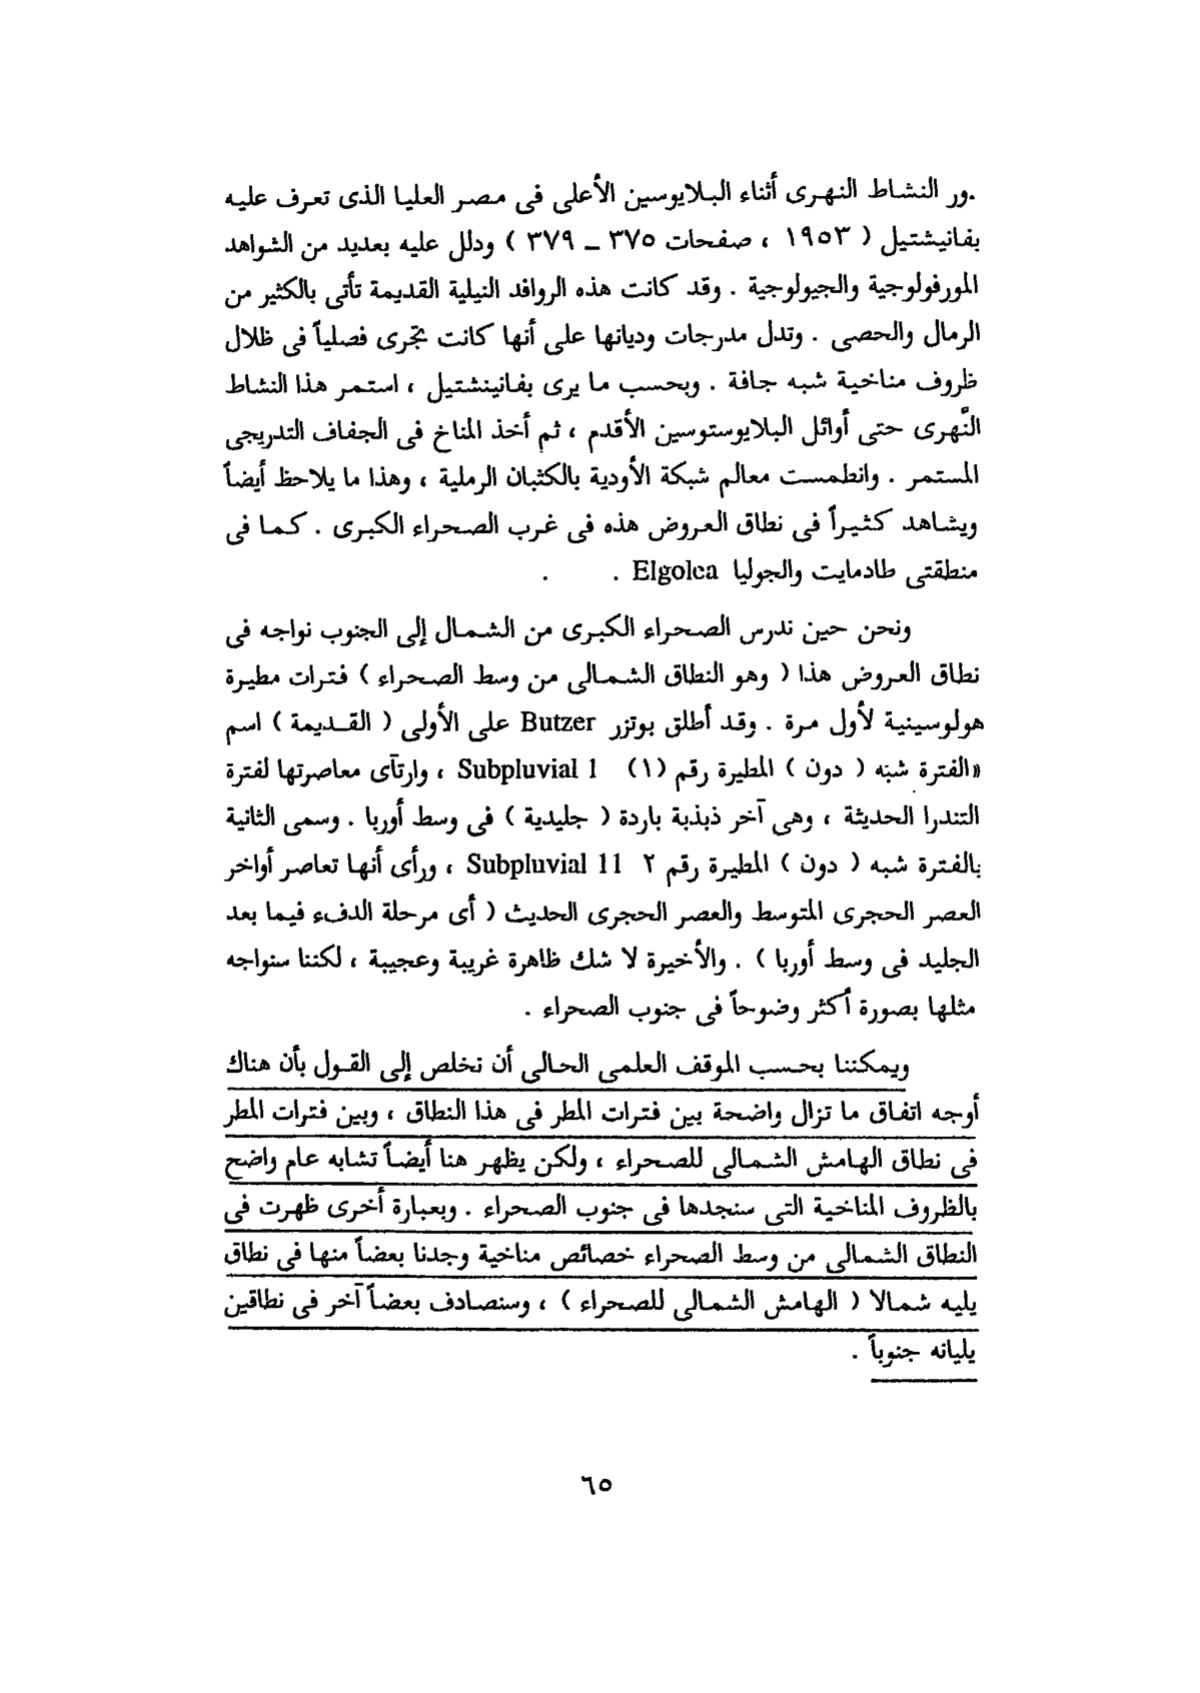 .ور النشاط النهرى أثناء البلايوسين الأعلى فى مصر العليا الذى تعرف عليه
بفانيشتيل ( ١٩٥٣ ، صفحات ٣٧٥ ــ ٣٧٩ ) ودلل عليه بعديد من الشواهد
المورفولوجية والجيولوجية . وقد كانت هذه الروافد النيلية القديمة تأتى بالكثير من
الرمال والحصى . وتدل مدرجات وديانها على أنها كانت تجرى فصلياً فى ظلال
ظروف مناخية شبه جافة . وبحسب ما يرى بفانينشتيل ، استمر هذا النشاط
النَّهرى حتى أوائل البلايوستوسين الأقدم ، ثم أخذ المناخ فى الجفاف التدريجى
المستمر . وانطمست معالم شبكة الأودية بالكثبان الرملية ، وهذا ما يلاحظ أيضاً
ويشاهد كثيراً فى نطاق العروض هذه فى غرب الصحراء الكبرى . كما فى
منطقتى طادمايت والجوليا Elgolca .
ونحن حين ندرس الصحراء الكبرى من الشمال إلى الجنوب نواجه فى
نطاق العروض هذا ( وهو النطاق الشمالى من وسط الصحراء ) فترات مطيرة
هولوسينية لأول مرة . وقد أطلق بوتزر Butzer على الأولى ( القديمة ) اسم
«الفترة شبه ( دون ) المطيرة رقم (١) Subpluvial 1 ، وارتآى معاصرتها لفترة
التندرا الحديثة ، وهى آخر ذبذبة باردة ( جليدية ) فى وسط أوربا . وسمى الثانية
بالفترة شبه ( دون ) المطيرة رقم ٢ Subpluvial 11 ، ورأى أنها تعاصر أواخر
العصر الحجرى المتوسط والعصر الحجرى الحديث ( أى مرحلة الدفء فيما بعد
الجليد فى وسط أوربا ) . والأخيرة لا شك ظاهرة غريبة وعجيبة ، لكننا سنواجه
مثلها بصورة أكثر وضوحاً فى جنوب الصحراء .
ويمكننا بحسب الموقف العلمى الحالى أن نخلص إلى القول بأن هناك
أوجه اتفاق ما تزال واضحة بين فترات المطر فى هذا النطاق ، وبين فترات المطر
فى نطاق الهامش الشمالى للصحراء ، ولكن يظهر هنا أيضاً تشابه عام واضح
بالظروف المناخية التى سنجدها فى جنوب الصحراء . وبعبارة أخرى ظهرت فى
النطاق الشمالى من وسط الصحراء خصائص مناخية وجدنا بعضاً منها فى نطاق
يليه شمالا ( الهامش الشمالى للصحراء ) ، وسنصادف بعضاً آخر فى نطاقين
يليانه جنوباً .
٦٥